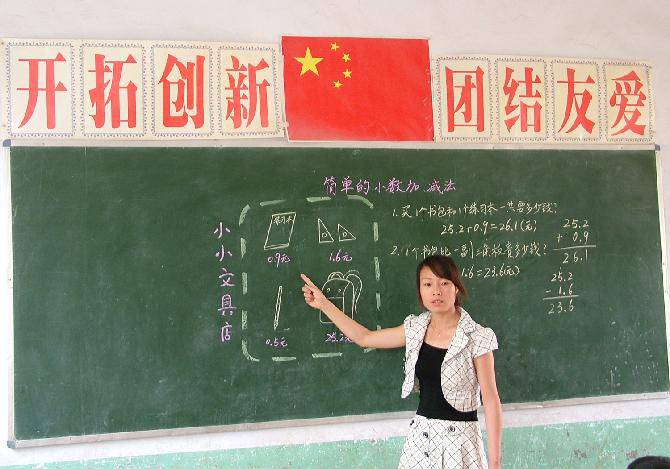 开拓创新
团结友爱
简单的小数加.减法
小小文具店
练习本
0.9元
1.6元
0.5元
25.2元
1.买1个书包和1个练习本一共要多少钱?
25.2+0.9=26.1(元)
2.1个书包比一副三角板贵多少钱?
1.6=23.6(元)
25.2
+ 0.9
26.1
25.2
- 1.6
23.6